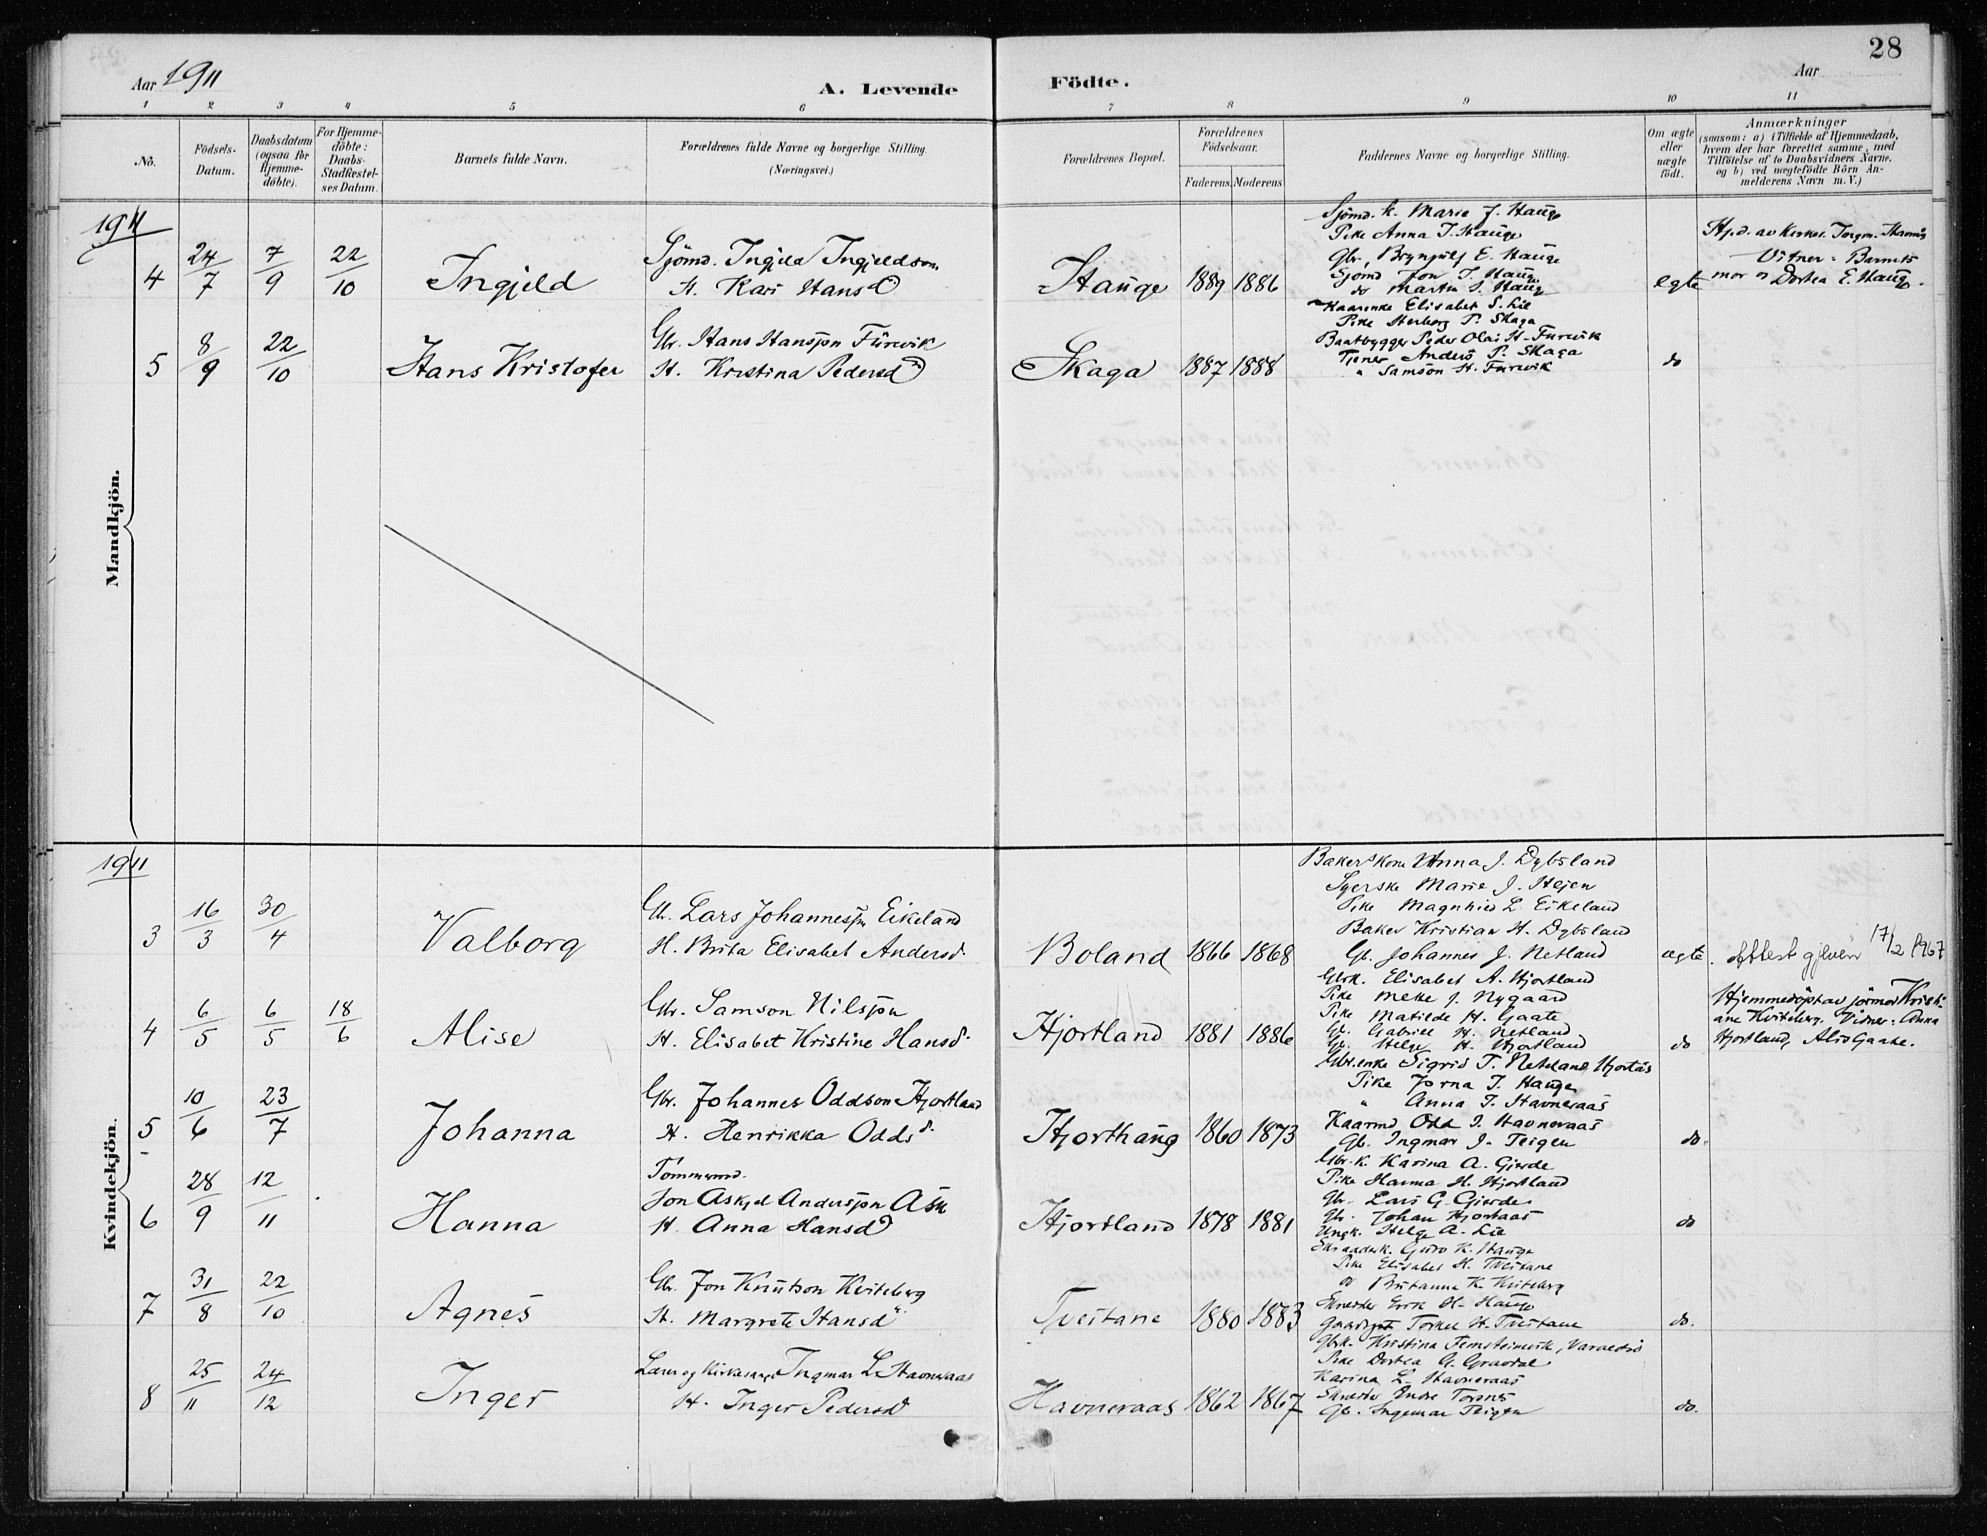 28
Aar 1911
A. Levende
Födte.
Aar
1 2 3 4 5 6 7 8 9 10 11
No.
Födsels-Datum.
Daabsdatum (ogsaa for Hjemme-döbte).
For Hjemme-döbte: Daabs-Stadfæstel-ses Datum.
Barnets fulde Navn.
Forældrenes fulde Navne og borgerlige Stilling. (Næringsvei.)
Forældrenes Bopæl.
Forældrenes Födselsaar.
Faderens. Moderens
Faddernes Navne og borgerlige Stilling.
Om ægte eller uægte födt.
Anmærkninger
(saasom: a) i Tilfælde af Hjemmedaab,
hvem der har forrettet samme, med
Tilföielse af to Daabsvidners Navne.
og b) ved uægtefödte Börn An-
melderens Navn m. V.)
Mandkjön.
1911
4 24/7 7/9 22/10 Ingjeld
Sjömd. Ingjeld Ingjeldson
H. Kari Hansd
Hauge 1889 1886
Sjömd. k. Marie J. Hauge
Pike Anna I. Hauge
Gbr. Brynjulf E. Hauge
Sjömd Jon I. Hauge
do Martin S. Haug
egte
Hj.d. av Kirkes. Ingm. Havnås
Vitner: Barnets
mor og Dortea E. Haug.
5 8/9 22/10 Hans Kristofer
Gbr. Hans Hansson Furevik
H. Kristina Pedersd
Skaga 1887 1888
Kaarenke Elisabet S. Lie
Pike Herborg P. Skaga
Baatbygger Peder Olai H. Furevik
Tjener Anders P. Skaga
" Samson H. Furevik
do
Kvindekjön.
1911
3 16/3 30/4 Valborg
Gb. Lars Johannesson Eikeland
H. Brita Elisabet Andersd.
Boland 1866 1868
Bakerskone Anna J. Dybsland
Syerske Marie J. Hejen
Pike Magnhild L. Eikeland
Baker Kristian H. Dybsland
Gb. Johannes J. Netland
ægte.
Attest gjeven 17/2 1967
4 6/5 6/5 18/6 Alise
Gbr. Samson Nilsson
H. Elisabet Kristine Hansd.
Hjortland 1881 1886
Gbrk. Elisabet A. Hjortland
Pike Melke J. Nygaard
Pike Matilde H. Gaate
Gb. Gabriel H. Netland
Gb. Helge H. Hjortland
do
Hjemmedöpt av jormor Kristi-
ane Kviteberg. Vidner: Anna
Hjortland, Alis Gaate.
5 10/6 23/7 Johanna
Gbr. Johannes Oddson Hjortland
H. Henrikka Oddsd.
Hjorthaug 1860 1873
Gbr.enke Sigrid T. Neteland, Hjortås
Pike Jorna T. Hauge
" Anna T. Havneraas
Kaarmd Odd I. Havneraas
Gb. Ingmar J. Teigen
do.
6 28/9 12/11 Hanna
Tömmermd.
Jon Askjel Andersson Ask
H. Anna Hansd
Hjortland 1878 1881
Gbr. k. Karina A. Gjerde
Pike Hanna H. Hjortland
Gb. Lars G. Gjerde
Gb. Johan Hjortaas
Ungk. Helge A. Lie
do
7 31/8 22/10 Agnes
Gbr. Jon Knutson Kviteberg
H. Margrete Hansd
Tveitane 1880 1883
Guro K. Hauge
Pike Elisabet H. Tveitane
do Britanna K. Kviteberg
Skredder Eirik H. Hauge
Torkel H. Tveitane
do.
8 25/11 24/12 Inger
Lærer og Kirkesanger Ingmar L. Havneraas
H. Inger Pedersd
Havneraas 1862 1867
Gbrk. Kristina Femsteinevik, Varaldsö
Pike Dortea G. Gravdal
Karina L. Havneraas
Skredder Andre Torsnes
Gb. Ingemar Teigen
do.